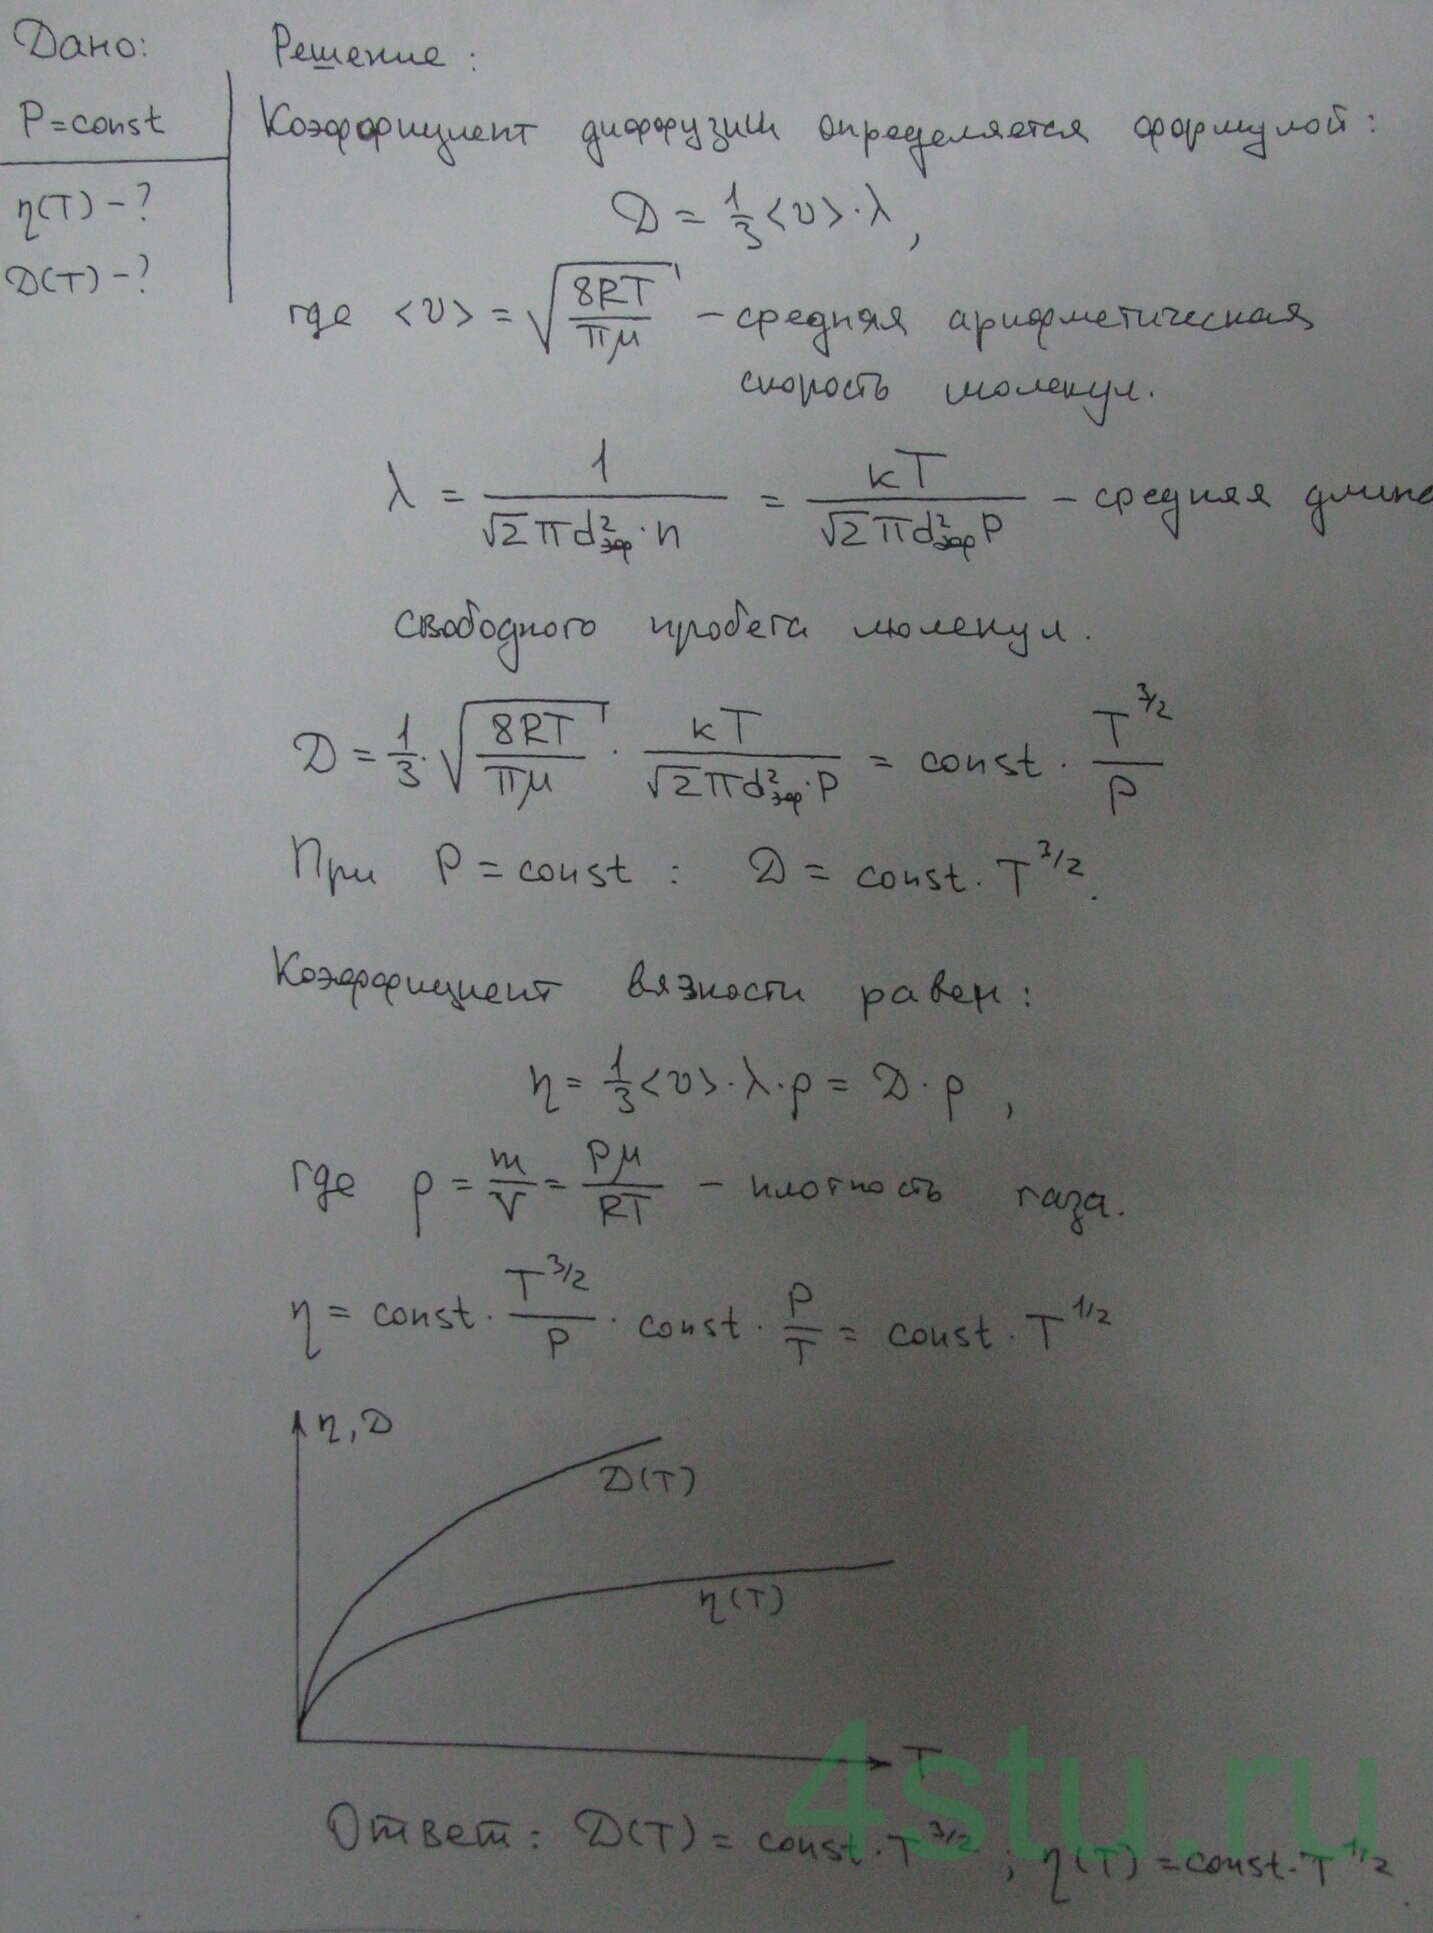 Дано:
P=const
η(T)-?
D(T)-?
Решение:
Коэффициент диффузии определяется формулой:
D = 1/3 <v>·λ,
где <v> = √(8RT/πμ) - средняя арифметическая
скорость молекул.
λ = 1/(√2πd²эф·n) = kT/(√2πd²эфP) - средняя длина
свободного пробега молекул.
D = 1/3·√(8RT/πμ)·kT/(√2πd²эф·P) = const·T^3/2/P
При P = const: D = const·T^3/2.
Коэффициент вязкости равен:
η = 1/3 <v>·λ·ρ = D·ρ,
где ρ = m/V = Pμ/RT - плотность газа.
η = const·T^3/2/P·const·P/T = const·T^1/2
η, D
D(T)
η(T)
T
4stu.ru
Ответ: D(T) = const·T^3/2; η(T) = const·T^1/2